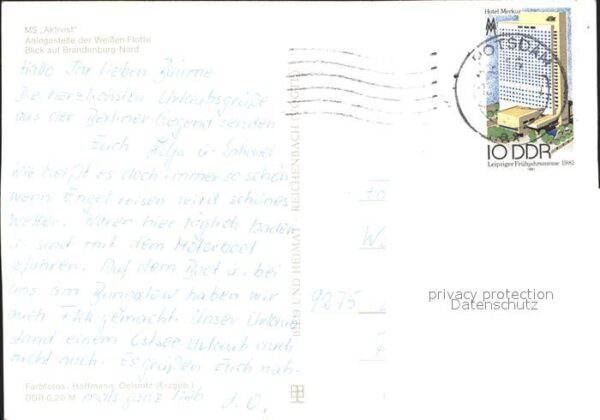 MS „Aktivist"
Anlegestelle der Weißen Flotte
Blick auf Brandenburg-Nord
Hallo Ihr lieben
Die herzlichsten Urlaubsgrüße
aus der Berliner Gegend senden
Euch u.
Wie heißt es doch immer so schön
wenn Engel reisen wird schönes
Wetter. Waren hier täglich baden
u. sind mit dem Motorboot
gefahren. Auf dem Boot u. bei
uns am Bungalow haben wir
auch FKK gemacht. Unser Urlaub
stand einem Ostsee-Urlaub auch
nicht nach. Es grüßen Euch noch-
mals ganz lieb
Farbfotos: Hoffmann, Oelsnitz (Erzgeb.)
DDR 0,20 M
BILD UND HEIMAT · REICHENBACH
Hotel Merkur
POTSDAM
10 DDR
Leipziger Frühjahrsmesse 1981
9275
privacy protection
Datenschutz